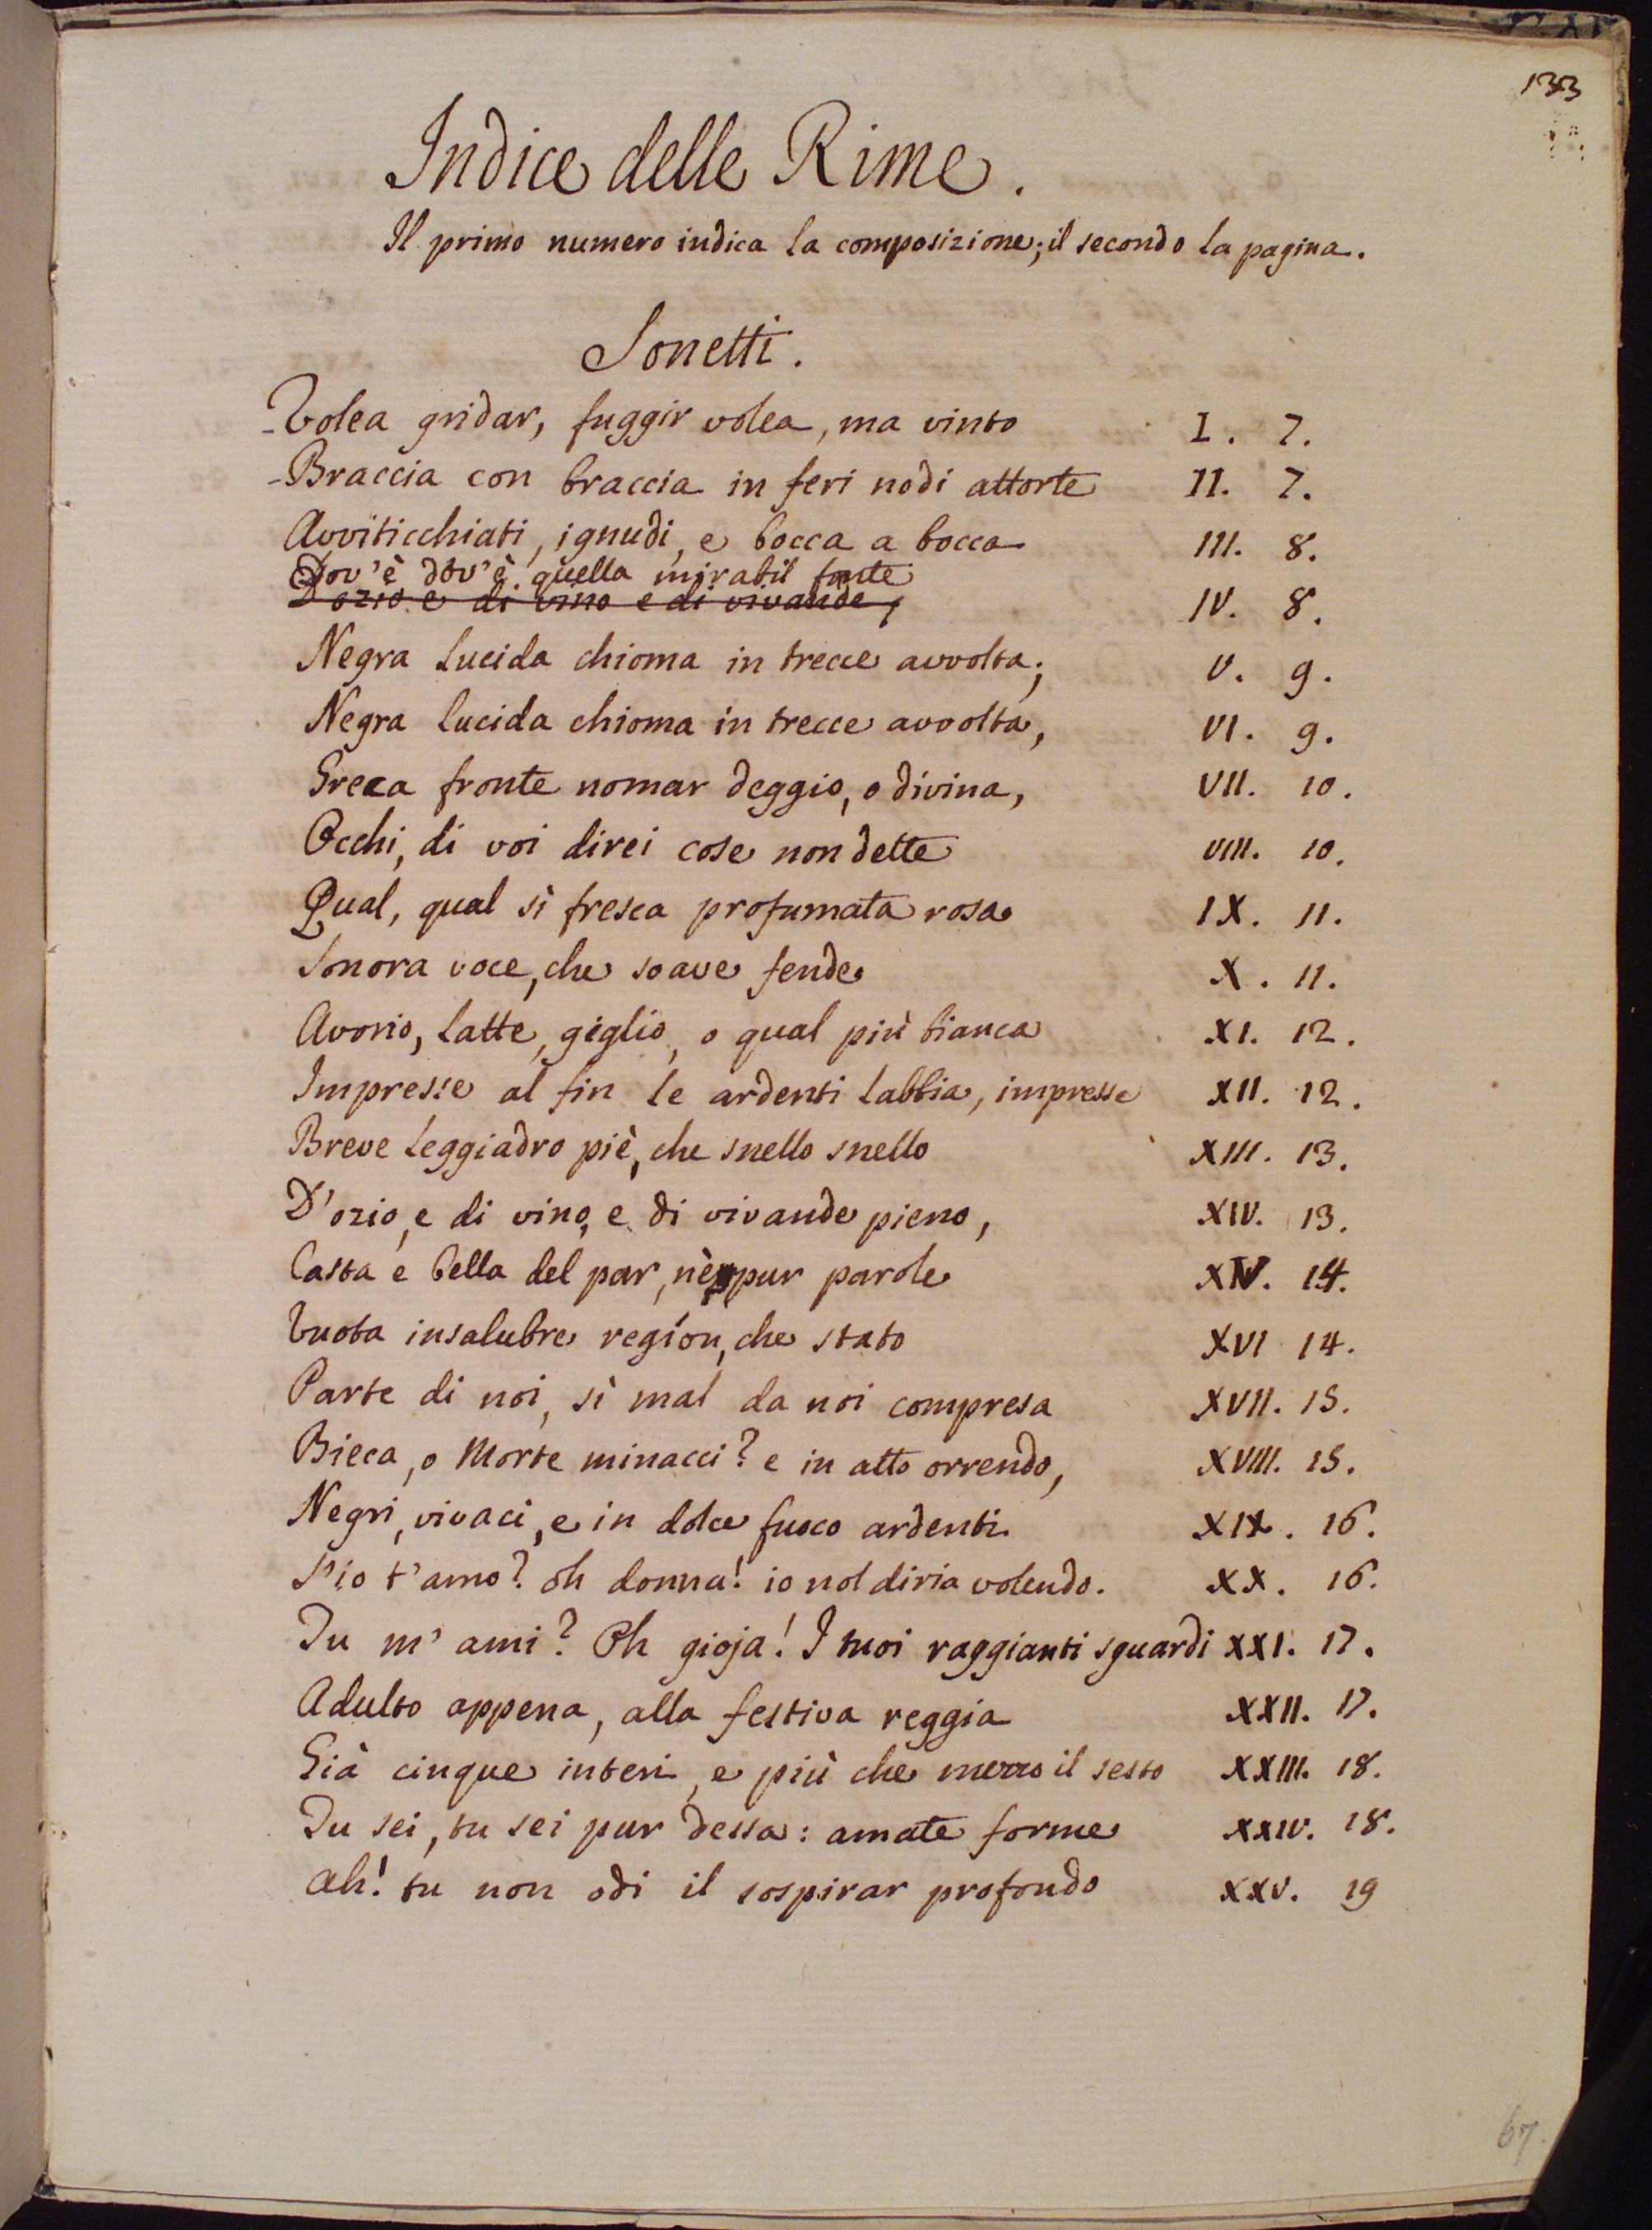 133
Indice delle Rime.
Il primo numero indica la composizione; il secondo la pagina.
Sonetti.
-Volea gridar, fuggir volea, ma vinto I. 7.
-Braccia con braccia in feri nodi attorte II. 7.
Avviticchiati, ignudi, e bocca a bocca III. 8.
Dov'è dov'è quella mirabil fonte
D'ozio e di vino e di vivande, IV. 8.
Negra lucida chioma in trecce avvolta; V. 9.
Negra lucida chioma in trecce avvolta, VI. 9.
Greca fronte nomar deggio, o divina, VII. 10.
Occhi, di voi direi cose non dette VIII. 10.
Qual, qual sì fresca profumata rosa IX. 11.
Sonora voce, che soave fende X. 11.
Avorio, latte, giglio, o qual più bianca XI. 12.
Impresse al fin le ardenti labbia, impresse XII. 12.
Breve leggiadro piè, che snello snello XIII. 13.
D'ozio, e di vino, e di vivande pieno, XIV. 13.
Casta e bella del par, nè pur parole XV. 14.
Vuota insalubre region, che stato XVI 14.
Parte di noi, sì mal da noi compresa XVII. 15.
Bieca, o Morte minacci? e in atto orrendo, XVIII. 15.
Negri, vivaci, e in dolce fuoco ardenti XIX. 16.
S'io t'amo? oh donna! io nol diria volendo. XX. 16.
Tu m'ami? Oh gioja! I tuoi raggianti sguardi XXI. 17.
Adulto appena, alla festiva reggia XXII. 17.
Già cinque interi, e più che mezzo il sesto XXIII. 18.
Tu sei, tu sei pur dessa: amate forme XXIV. 18.
Ah! tu non odi il sospirar profondo XXV. 19
67.